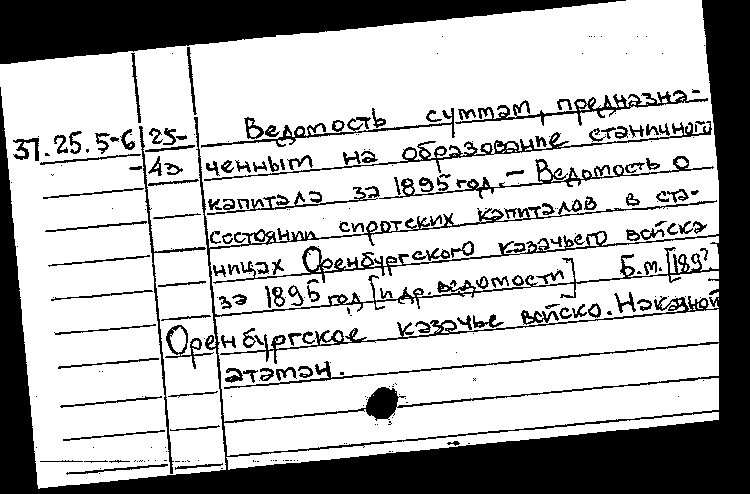 37.25.5-6 25- Ведомость суммам, предназна-
-43 ченным на образование станичного
капитала за 1895 год. - Ведомость о
состоянии сиротских капиталов в ста-
ницах Оренбургского казачьего войска
за 1895 год [и др. ведомости] Б.м. [189?
Оренбургское казачье войско. Наказной
атаман.